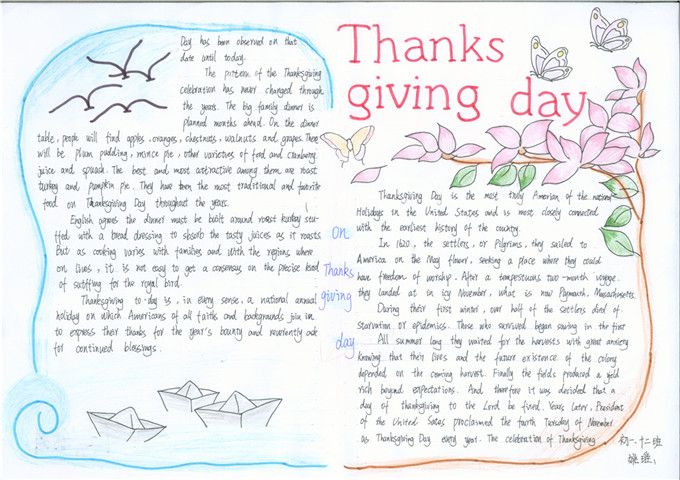 Thanks
giving day
Thanksgiving Day is the most truly Amerian of the national
Holidays in the United States and is most closely connected
with the earliest history of the country.
In 1620, the settlers, or Pilgrims, they sailed to
America on the May flower, seeking a place where they could
have freedom of worship. After a tempestuous two-month voyage
they landed at in icy November, what is now Plymouth, Massachusettes.
During their first winter, over half of the settlers died of
starvation or epidemics. Those who survived began sowing in the first
All summer long they waited for the harvests with great anxiety
knowing that their lives and the future existence of the colony
depended on the coming harvest. Finally the fields produced a yield
rich beyond expectations. And therefore it was decided that a
day of thanksgiving to the Lord be fixed. Years later, President
of the United States proclaimed the fourth Tuesday of November
as Thanksgiving Day every year. The celebration of Thanksgiving
初一.十二班
On
Thanks
giving
day
Day has been observed on that
date until today.
The pattern of the Thanksgiving
celebration has never changed through
the years. The big family dinner is
planned months ahead. On the dinner
table, people will find apples, oranges, chestnuts, walnuts and grapes. There
will be plum pudding, mince pie, other varieties of food and cranberry
juice and squash. The best and most attractive among them are roast
turkey and pumpkin pie. They have been the most traditional and favorite
food on Thanksgiving Day throughout the years.
English agrees the dinner must be built around roast turkey stu-
ffed with a bread dressing to absorb the tasty juices as it roasts.
But as cooking varies with families and with the regions where
on lives, it is not easy to get a consensus on the precise kind
of sutffing for the royal bird.
Thanksgiving to-day is, in every sense, a national annual
holiday on which Americans of all faiths and backgrounds join in
to express their thanks for the year's bounty and reverently ask
for continued blessings.